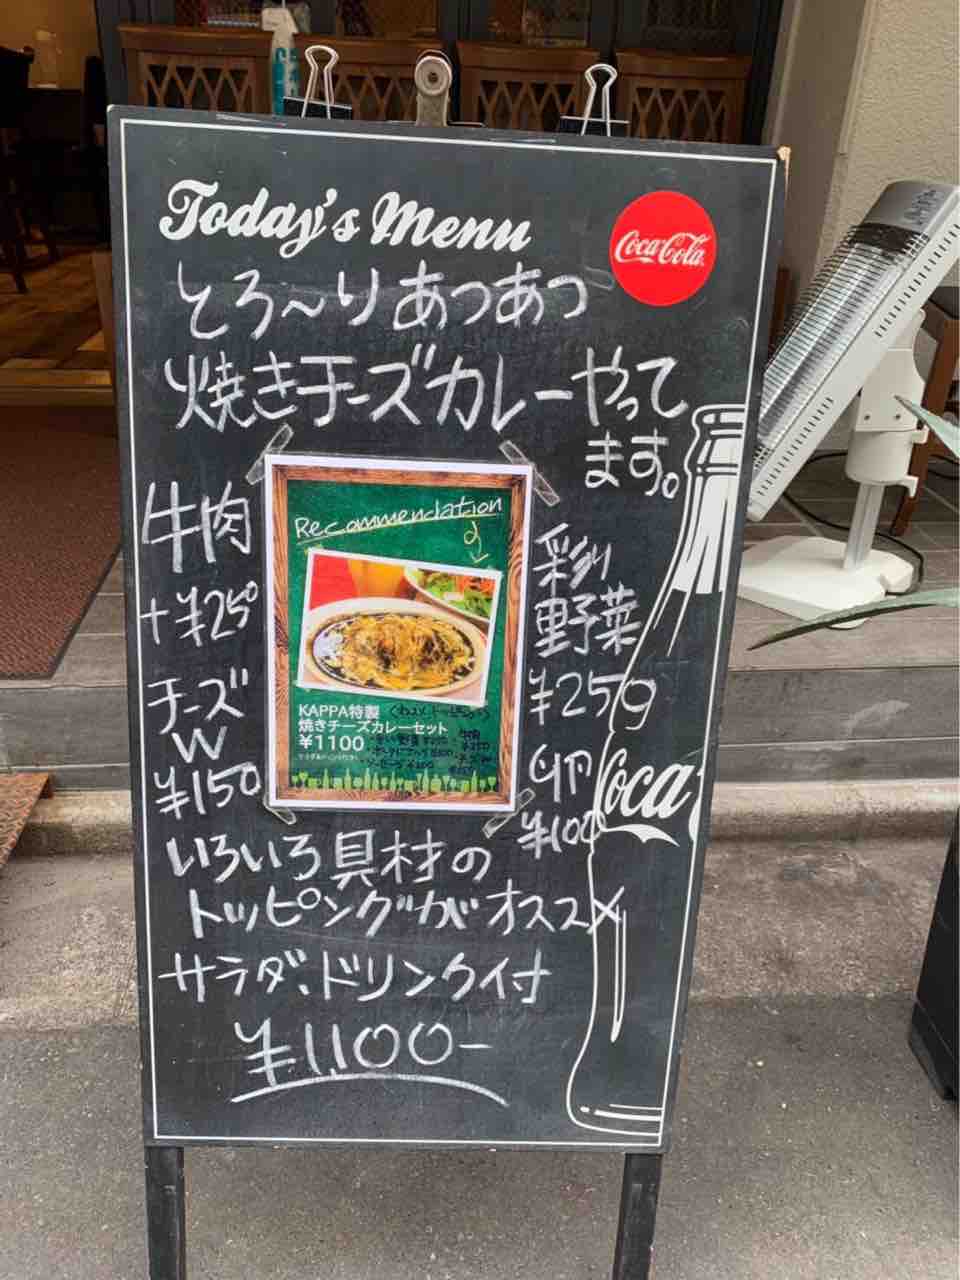 Today's Menu
Coca-Cola
とろ〜りあつあつ
焼きチーズカレーやって
ます。
牛肉
+¥250
チーズ
W
¥150
Recommendation
KAPPA特製
焼きチーズカレーセット
¥1100
彩り
野菜
¥250
卵
¥100
Coca
いろいろ具材の
トッピングがオススメ
サラダ、ドリンク付
¥1,100-